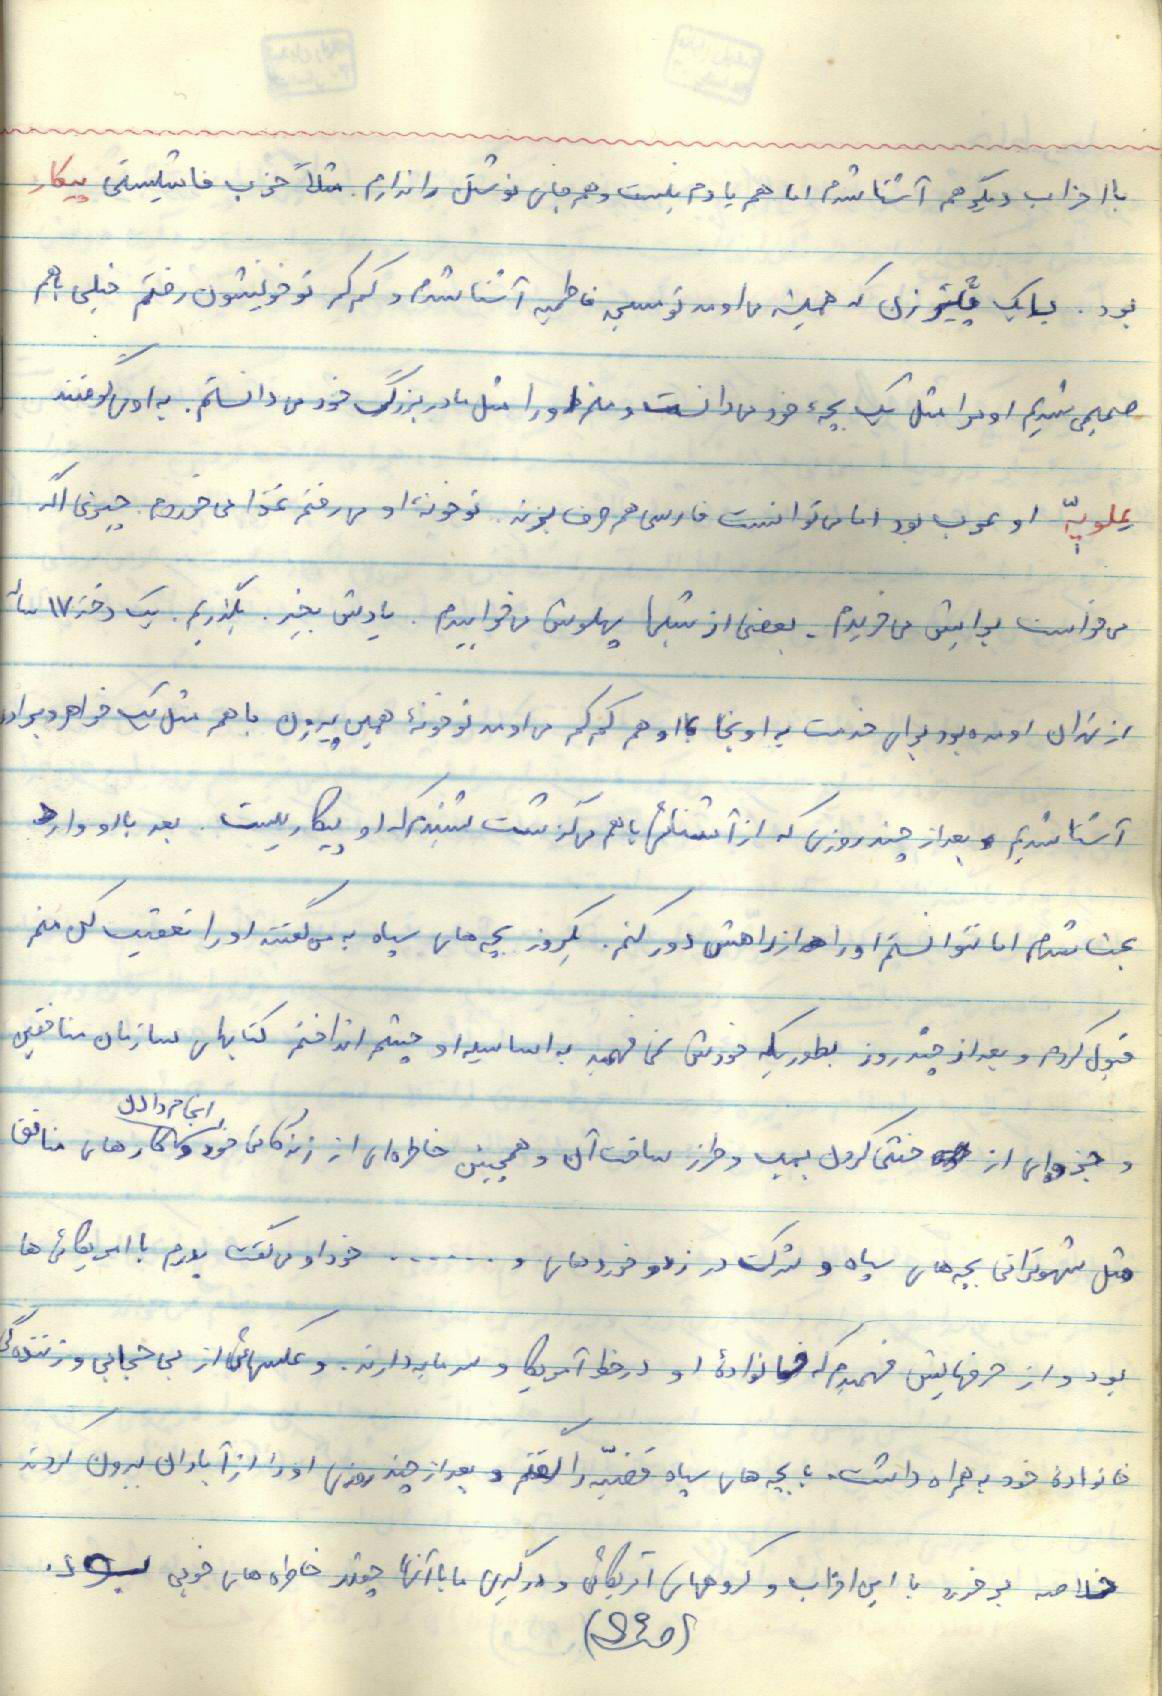 با احزاب دیگر هم آشنا شدم اما هم یادم نیست و هم جای نوشتن را ندارم. مثلاً حزب فاشیستی پیکار
بود. با یک پیر زن که همیشه می اومد تو مسجد فاطمیه آشنا شدم و کم کم تو خونیشون رفتم خیلی با هم
صمیمی شدیم او مرا مثل یک بچهٔ خود می دانست و منم او را مثل مادربزرگ خود می دانستم. به او می گفتند
علویه او عرب بود اما می توانست فارسی هم حرف بزنه. تو خونهٔ او می رفتم غذا می خوردم. چیزی اگه
می خواست برایش می خریدم. بعضی از شبها پهلوش می خوابیدم. یادش بخیر. بگذریم. یک دختر ۱۷ ساله
از تهران اومده بود برای خدمت به اونجا با او هم کم کم می اومد تو خونهٔ همین پیرزن با هم مثل یک خواهر و برادر
آشنا شدیم و بعد از چند روزی که از آشنائی با هم می گذشت شنیدم که او پیکاریست. بعد با او وارد
بحث شدم اما نتوانستم او را از راهش دور کنم. یکروز بچه های سپاه به من گفتند او را تعقیب کن منم
قبول کردم و بعد از چند روز بطوریکه خودش نمی فهمید به اساسیه او چشم انداختم کتابهای سازمان منافقین
و جزوه ای از خنثی کردن بمب و طرز ساخت آن و همچنین خاطره ای از زندگانی خود و انجام دادن کارهای منافق
مثل شهوترانی بچه های سپاه و شرکت در زد و خوردهای و ....... خود او می گفت پدرم با امریکائی ها
بود و از حرفهایش فهمیدم که خانوادهٔ او در خط آمریکا و سرمایه دارند. و عکسهائی از بی حجابی و زنندگی
خانوادهٔ خود به همراه داشت. با بچه های سپاه قضیّه را گفتم و بعد از چند روزی او را از آبادان بیرون کردند
خلاصه برخورد با این احزاب و گروههای آمریکائی و درگیری ما با آنها چقدر خاطره های خوبی بود.